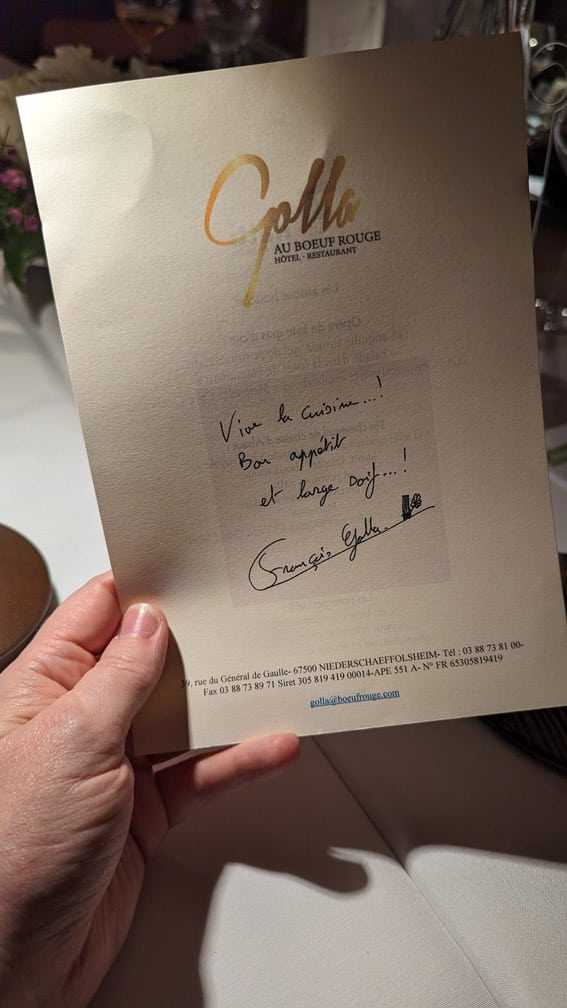 Golla
AU BOEUF ROUGE
HÔTEL - RESTAURANT
Vive la cuisine...!
Bon appétit
et large soif...!
François Golla.
39, rue du Général de Gaulle- 67500 NIEDERSCHAEFFOLSHEIM- Tél : 03 88 73 81 00-
Fax 03 88 73 89 71 Siret 305 819 419 00014-APE 551 A- N° FR 65305819419
golla@boeufrouge.com